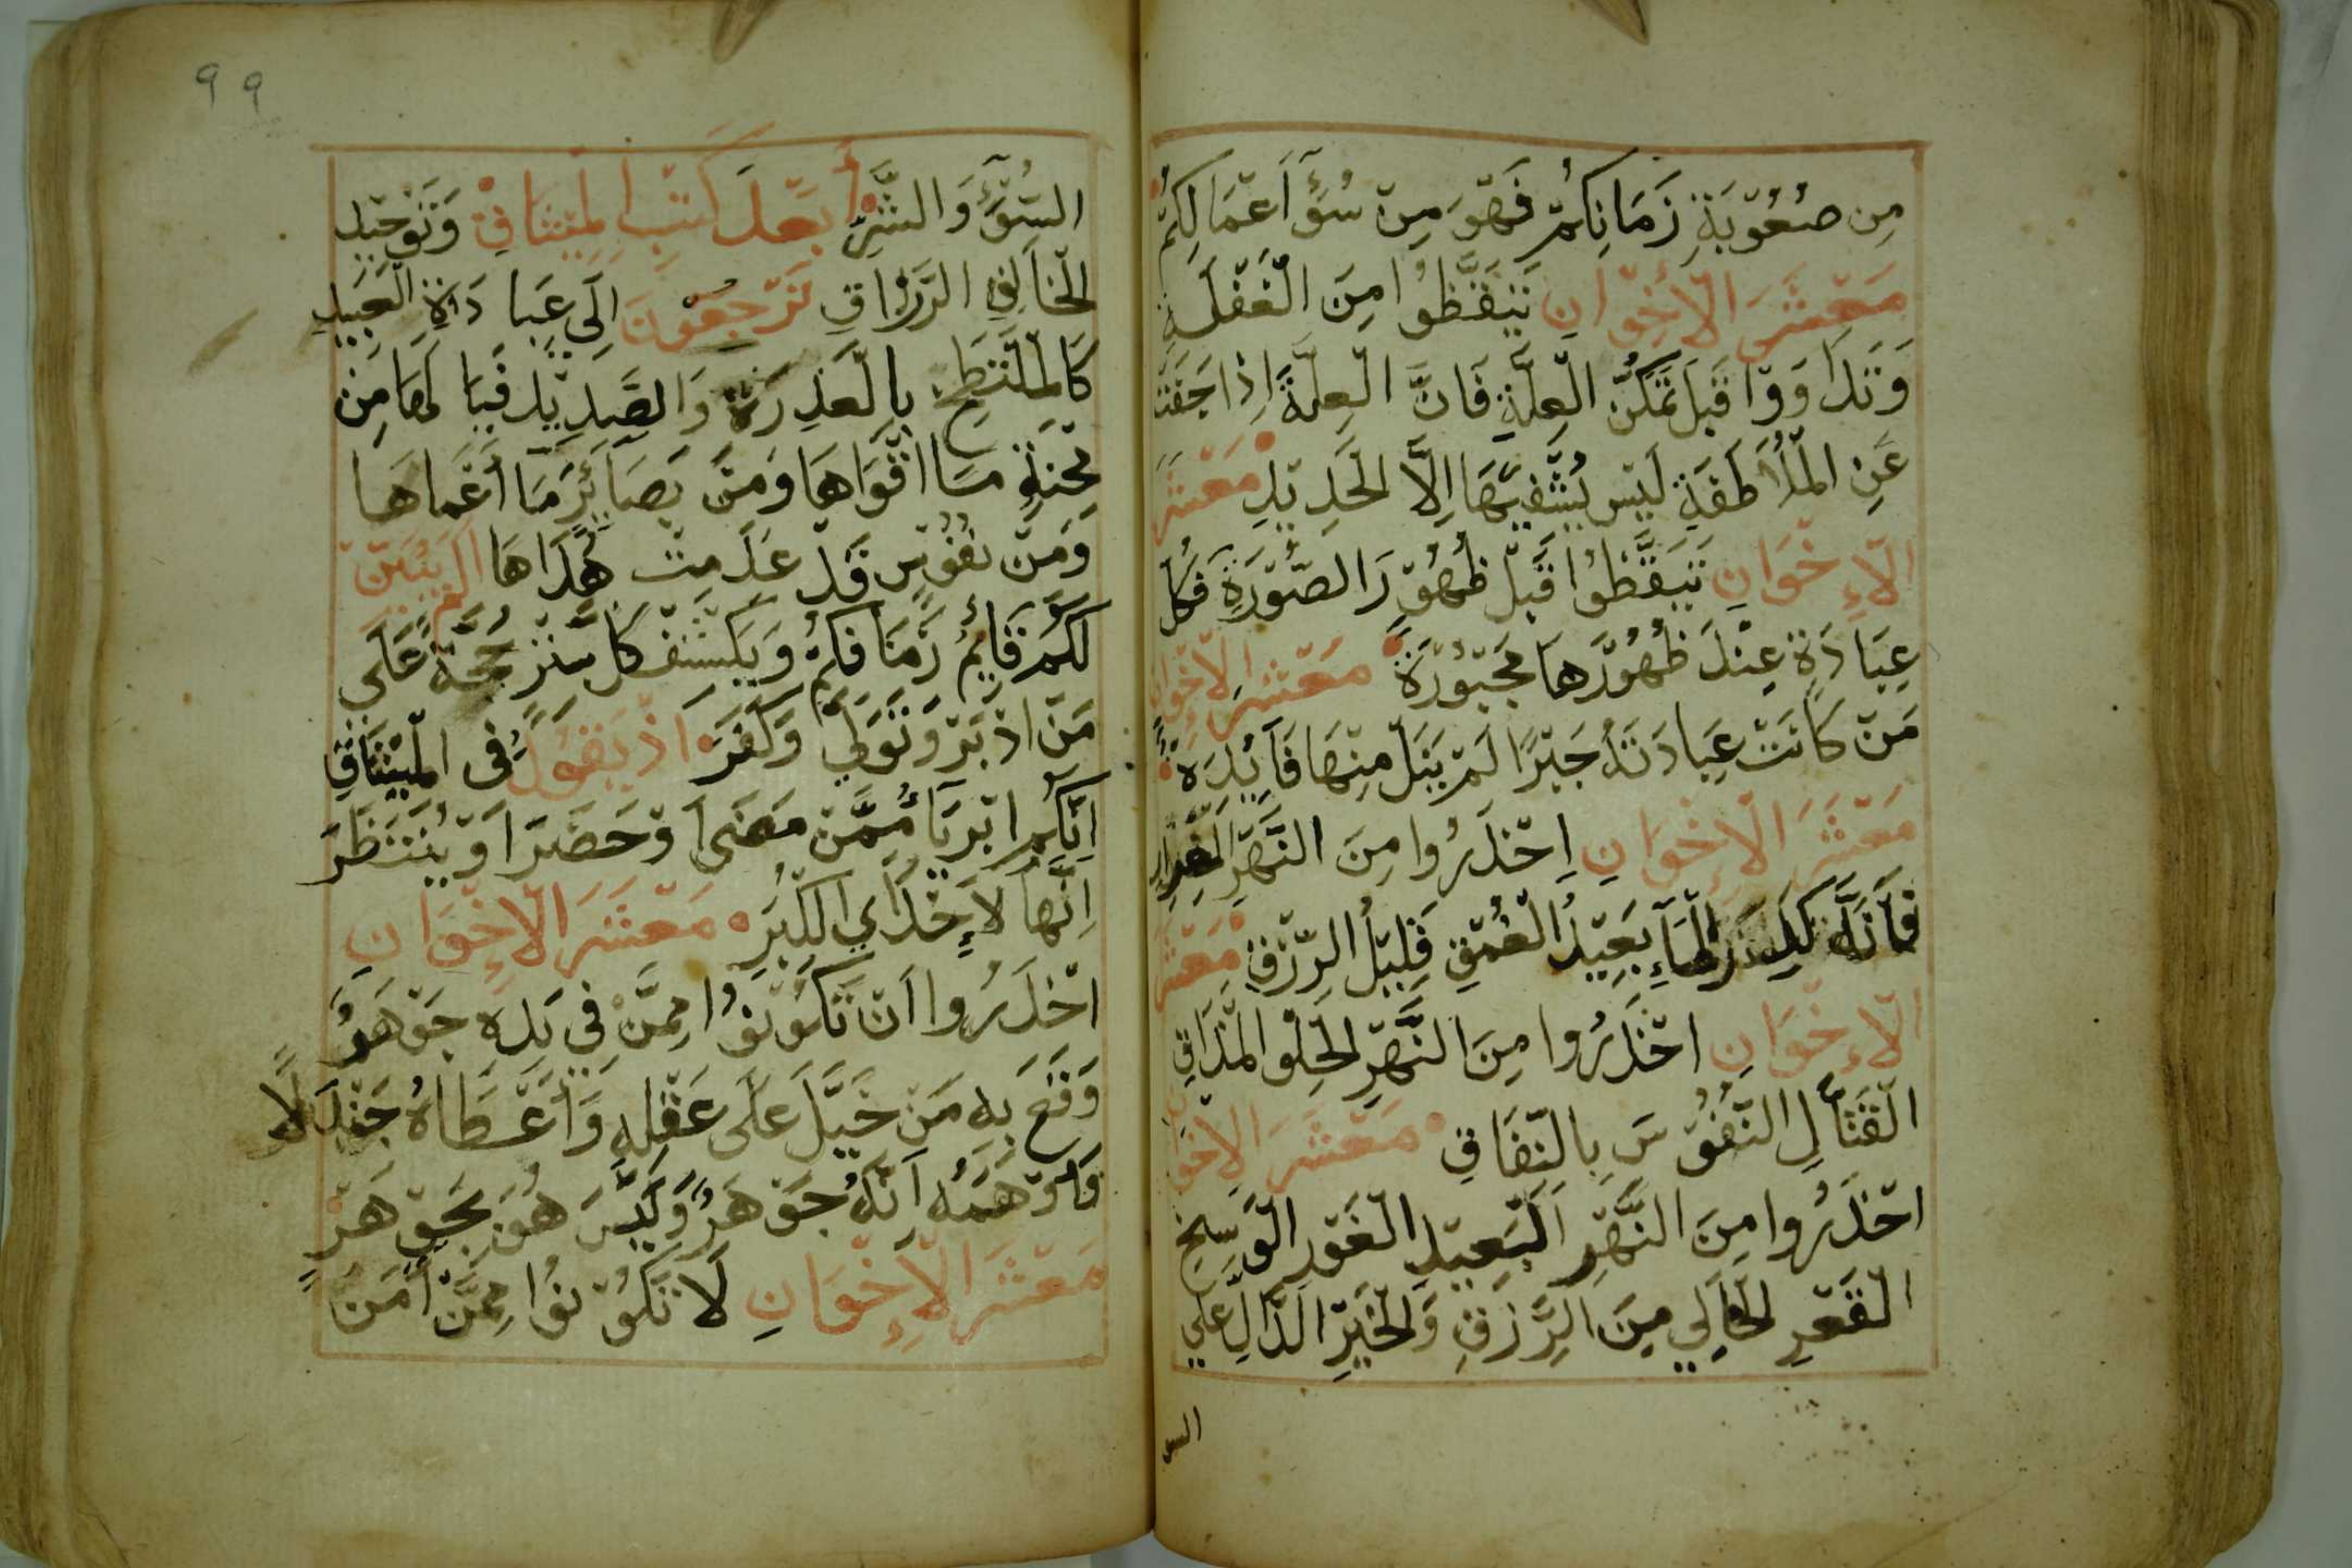 مِن صُعُوْبَةِ زَمَانِكُمْ فَهْوَ مِنْ سُوءِ اَعْمَالِكُمْ
مَعْشَرَ الْاِخْوَانِ تَيَقَّظُوا مِنَ الْغَفْلَةِ
وَتَدَاوَوْا قَبْلَ تَمَكُّنِ الْعِلَّةِ فَاِنَّ الْعِلَّةَ اِذَا جَفَتْ
عَنِ الْمُلَاطَفَةِ لَيْسَ يُشْفِيْهَا اِلَّا الْحَدِيْدِ مَعْشَرَ
الْاِخْوَانِ تَيَقَّظُوا قَبْلَ ظُهُوْرَ الصُّوْرَةِ فَكُل
عِبَادَةٍ عِنْدَ ظُهُوْرَهَا مَجْبُوْرَةْ مَعْشَرَ الْاِخْوَانِ
مَنْ كَانَتْ عِبَادَتَهُ جَبْرًا لَمْ يَنَلْ مِنْهَا فَايِدَه
مَعْشَرَ الْاِخْوَانِ اِحْذَرُوا مِنَ النَّهَرِ الْغَرَّارِ
فَاَنَّهُ كَدِرُ الْمَآءِ بَعِيْدُ الْعُمْقِ قَلِيْلُ الرِّزْقِ مَعْشَرَ
الْاِخْوَانِ احْذَرُوا مِنَ النَّهَرِ الْحِلْوِ الْمَذَاقِ
الْقَتَّالِ النُّفُوْسَ بِالنِّفَاقِ مَعْشَرَ الْاِخْوَانِ
احْذَرُوا مِنَ النَّهَرِ اَلْبَعِيْدِ الْغَوْرِ الْوَسِخِ
الْقَعْرِ الْخَالِي مِنَ الرِّزْقِ وَالْخَيْرِ الدَّالِ عَلَى
السو
99
السُّوْءِ وَالشَّرِّ أَبَعْدَ كَتْبِ الْمِيْثَاقِ وَتَوْحِيْدِ
الْخَالِقِ الرَّزَّاقِ تَرْجِعُوْنَ اِلَى عِبَادَةِ الْعَبِيْدِ
كَالْمُلْتَطِخِ بِالْعَذِرَةِ وَالصَّدِيْدِ فَيَا لَهَا مِنْ
مِحْنَةٍ مَا اقْوَاهَا وَمِنْ بَصَايِرَ مَا أَعْمَاهَا
وَمِنْ نُفُوْسٍ قَدْ عَدِمَتْ هُدَاهَا اَلَمْ يُبَيِّنْ
لَكُمْ قَايِمُ زَمَانِكُمْ وَيَكْشِفْ كَاسِتْرٍ حُجَّةً عَلَى
مَنْ ادْبَرَ وَتَوَلَّى وَكَفَرَ اذْ يَقُوْلُ فِى الْمِيْثَاقِ
اِنَّكُمْ ابْرِيَاءُ مِمَّنْ مَضَى اَوْ حَضَرَ اَوْ يُنْتَظَرَ
اِنَّهَا لَاِحْدَاي الْكُبَرِ مَعْشَرَ الْاِخْوَانِ
احْذَرُوا اَنْ تَكُوْنُوْا مِمَّنْ فِي يَدِهِ جَوْهَرٌ
وَقَعَ بِهِ مَنْ خَيَّلَ عَلَى عَقْلِهِ وَاَعْطَاهُ جَنْدَلًا
وَاَوْهَمَهُ اَنَّهُ جَوْهَرٌ وَلَيْسَ هُوَ بِجَوْهَرْ
مَعْشَرَ الْاِخْوَانِ لَا تَكُوْنُوْا مِمَّنْ أَمَنَ